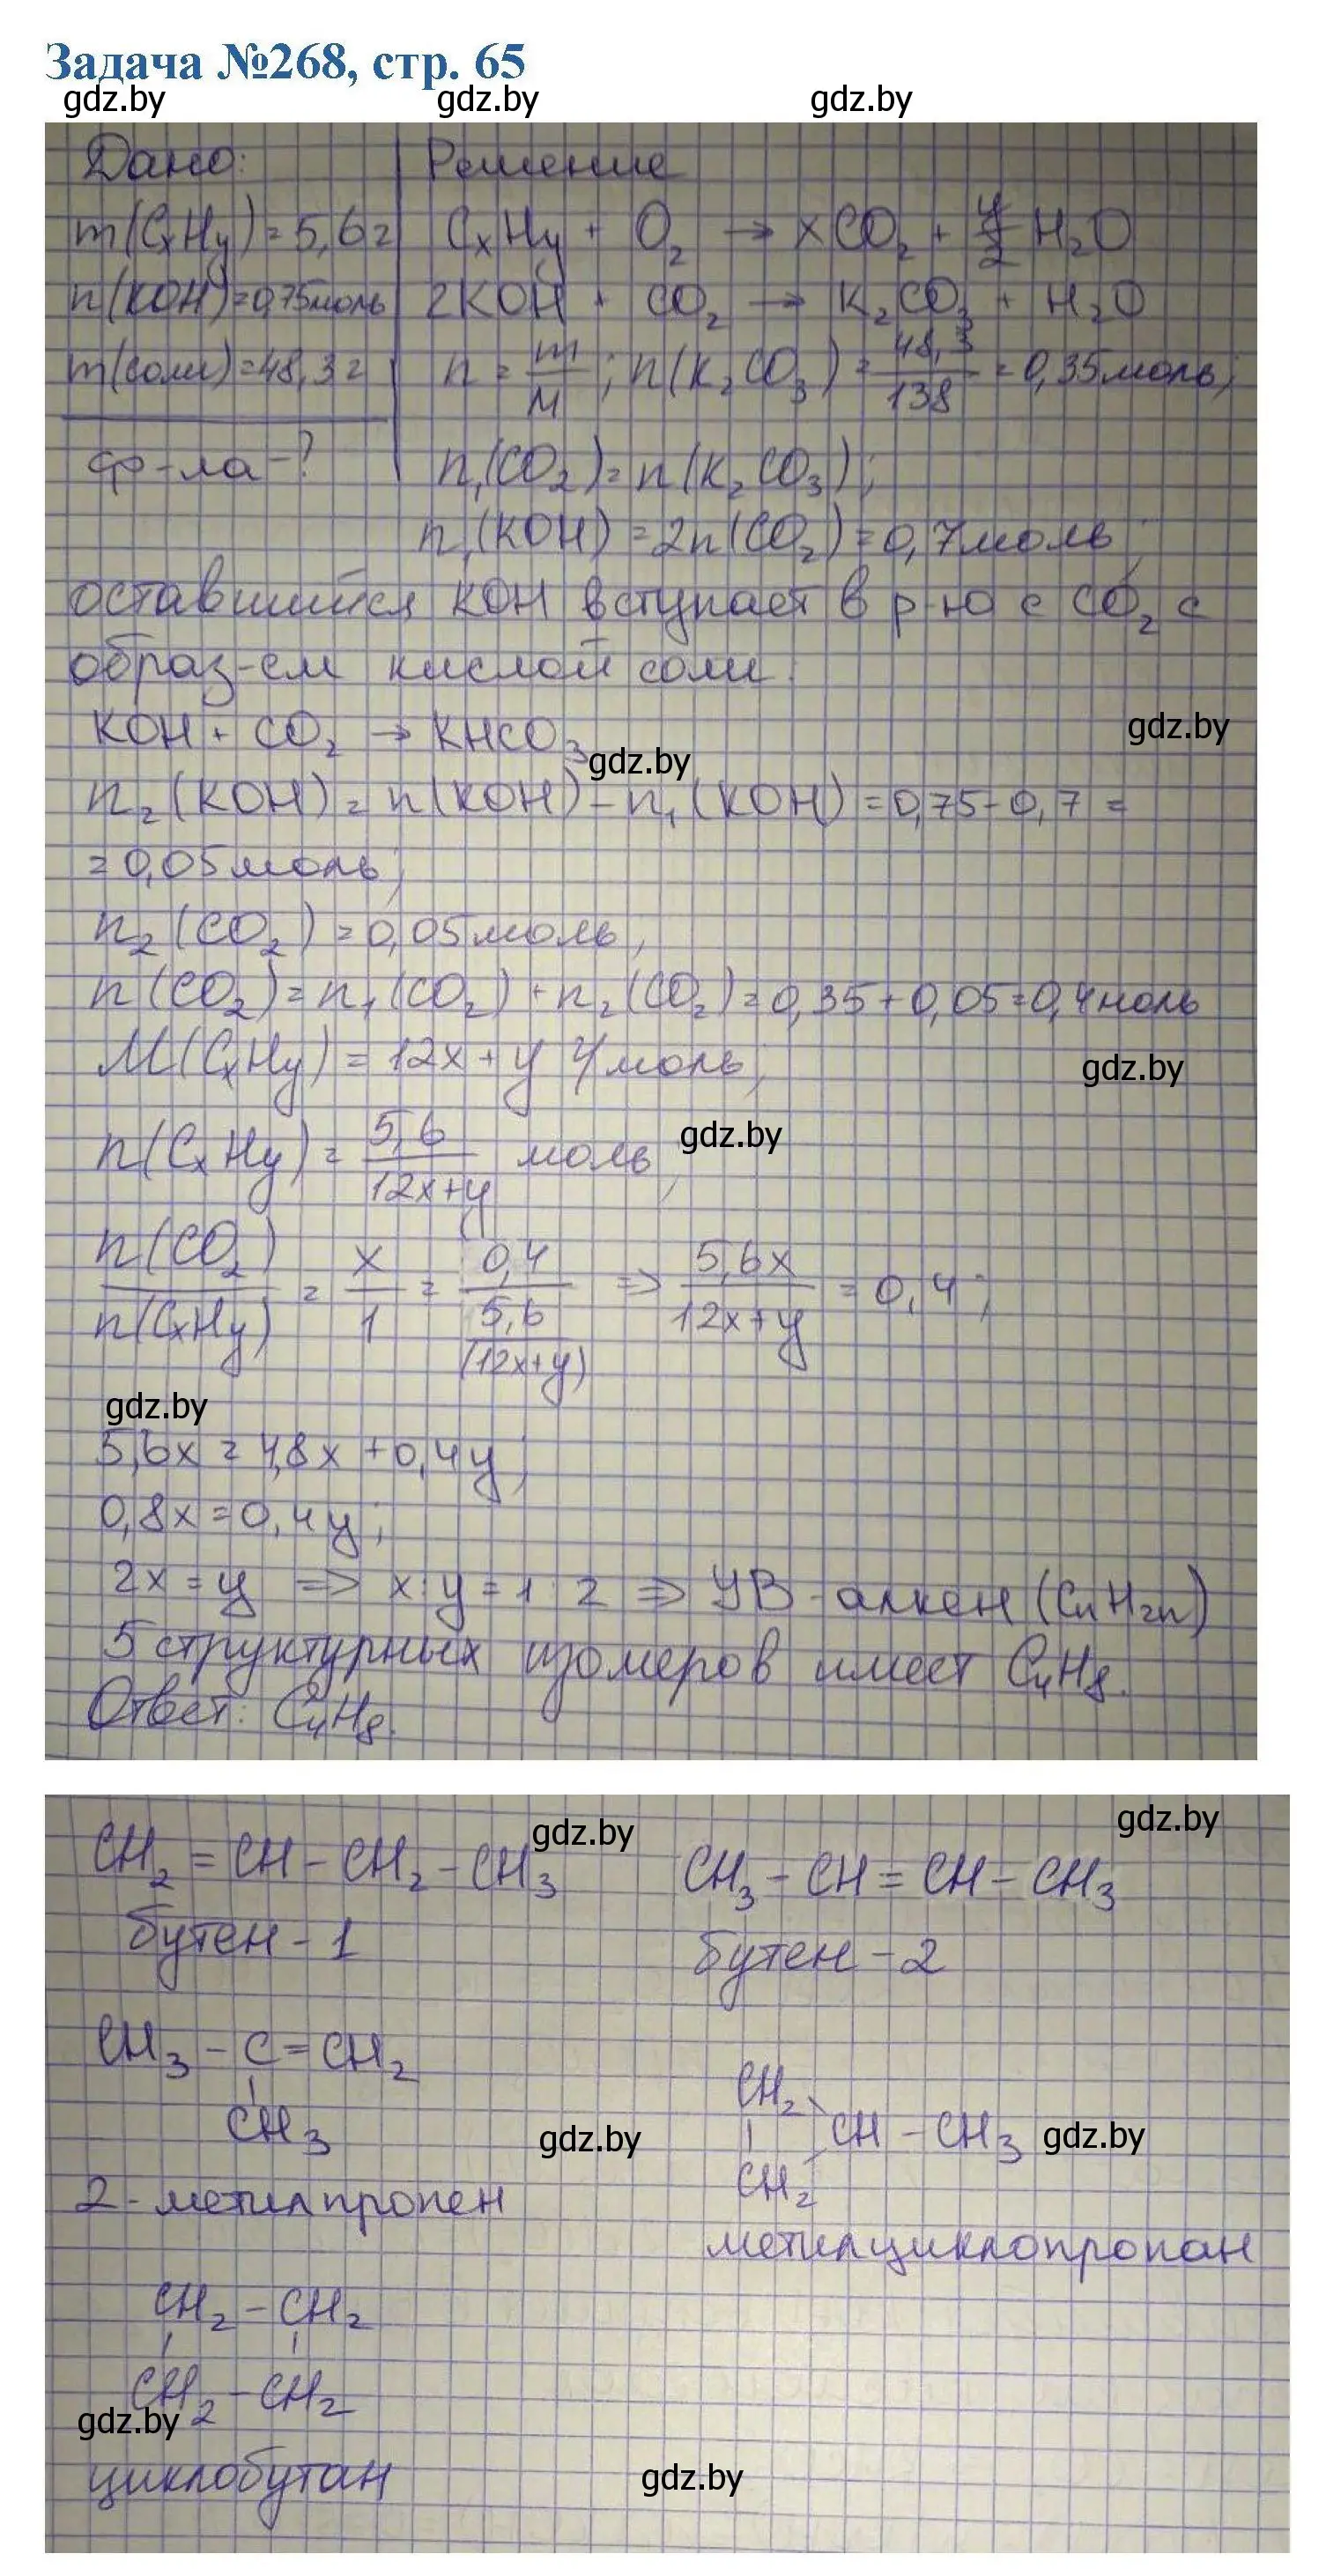 Задача №268, стр. 65
gdz.by gdz.by gdz.by
Дано: Решение
m(CxHy)=5,6г CxHy + O₂ → xCO₂ + y/2 H₂O
n(KOH)=0,75моль 2KOH + CO₂ → K₂CO₃ + H₂O
m(соли)=48,3г n = m/M ; n(K₂CO₃) = 48,3/138 = 0,35моль;
ф-ла-? n₁(CO₂)=n(K₂CO₃);
n₁(KOH)=2n(CO₂)=0,7моль;
оставшийся KOH вступает в р-ю с CO₂ с
образ-ем кислой соли:
KOH + CO₂ → KHCO₃ gdz.by
gdz.by
n₂(KOH)= n(KOH)-n₁(KOH)=0,75-0,7 =
=0,05моль;
n₂(CO₂)=0,05моль;
n(CO₂)=n₁(CO₂)+n₂(CO₂)=0,35+0,05=0,4моль
M(CxHy)=12x+y г/моль; gdz.by
n(CxHy)= 5,6/12x+y моль; gdz.by
n(CO₂)/n(CxHy) = x/1 = 0,4/5,6/(12x+y) => 5,6x/12x+y = 0,4;
gdz.by
5,6x=4,8x+0,4y;
0,8x=0,4y;
2x=y => x:y=1:2 => УВ-алкен (CnH2n)
5 структурных изомеров имеет C₄H₈.
Ответ: C₄H₈.
gdz.by gdz.by
CH₂=CH-CH₂-CH₃ CH₃-CH=CH-CH₃
бутен-1 бутен-2
CH₃-C=CH₂ CH₂
CH₃ gdz.by CH-CH₃ gdz.by
CH₂
2-метилпропен метилциклопропан
CH₂-CH₂
CH₂-CH₂
gdz.by
циклобутан gdz.by